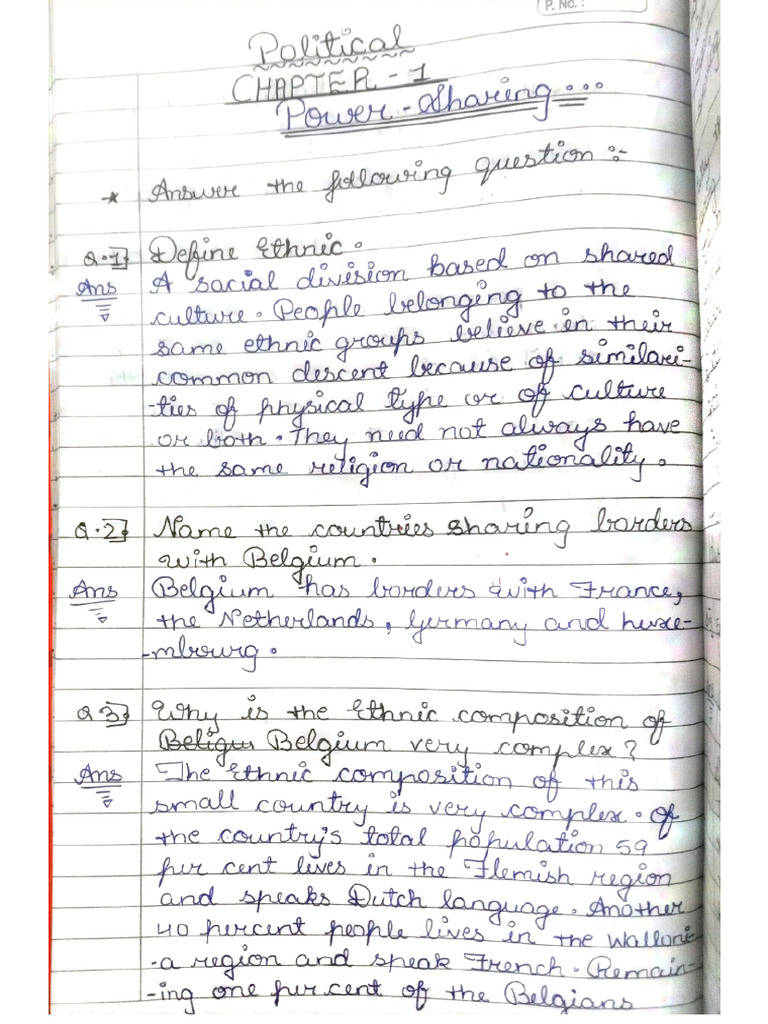 P. No. :
Political
CHAPTER - 1
Power - Sharing...
* Answer the following question :-
Q.1} Define Ethnic.
Ans A social division based on shared
culture. People belonging to the
same ethnic groups believe in their
common descent because of similari-
-ties of physical type or of culture
or both. They need not always have
the same religion or nationality.
Q.2} Name the countries sharing borders
with Belgium.
Ans Belgium has borders with France,
the Netherlands, Germany and Luxe-
-mbourg.
Q 3} Why is the Ethnic composition of
Beligu Belgium very complex?
Ans The Ethnic composition of this
small country is very complex. Of
the country's total population 59
per cent lives in the Flemish region
and speaks Dutch language. Another
40 percent people lives in the Walloni
-a region and speak French. Remain-
-ing one per cent of the Belgians